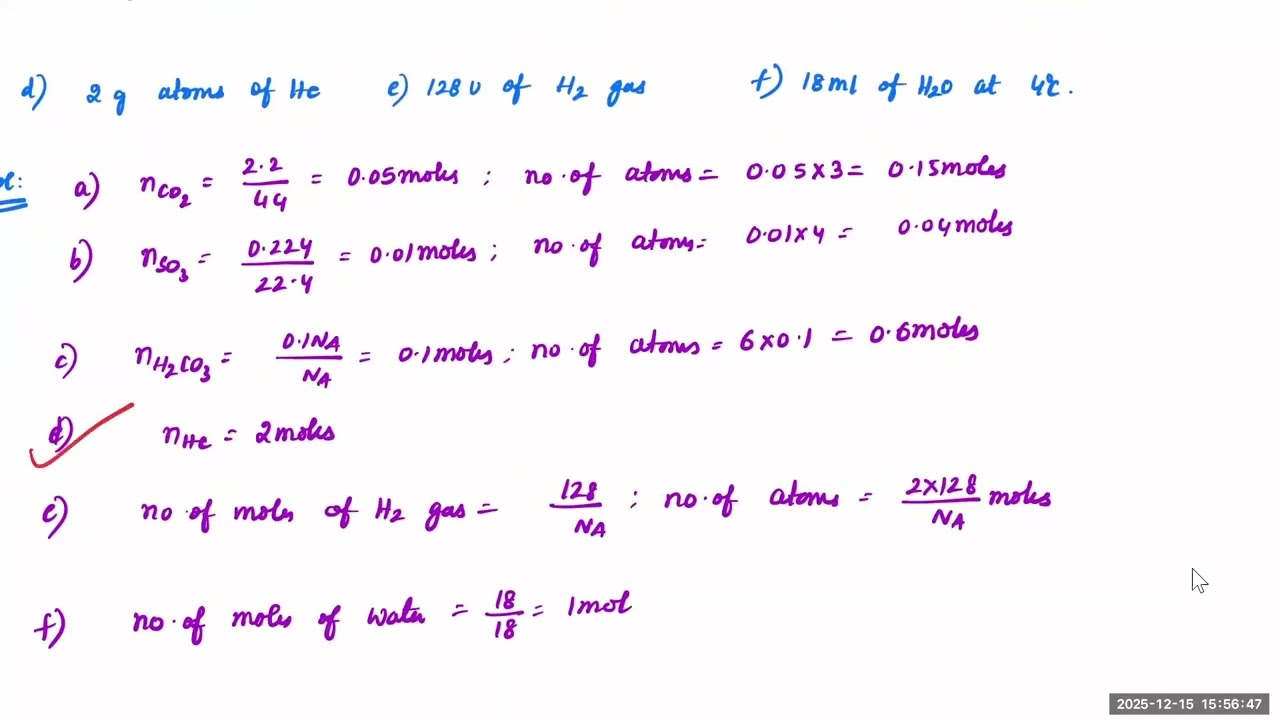 d) 2 g atoms of He e) 128 U of H₂ gas f) 18ml of H₂O at 4℃.
a) nCO₂ = 2.2/44 = 0.05moles ; no.of atoms = 0.05×3 = 0.15moles
b) nSO₃ = 0.224/22.4 = 0.01moles ; no.of atoms = 0.01×4 = 0.04moles
c) nH₂CO₃ = 0.1NA/NA = 0.1moles ; no.of atoms = 6×0.1 = 0.6moles
d) nHe = 2moles
e) no.of moles of H₂ gas = 128/NA ; no.of atoms = 2×128/NA moles
f) no.of moles of water = 18/18 = 1mol
2025-12-15 15:56:47